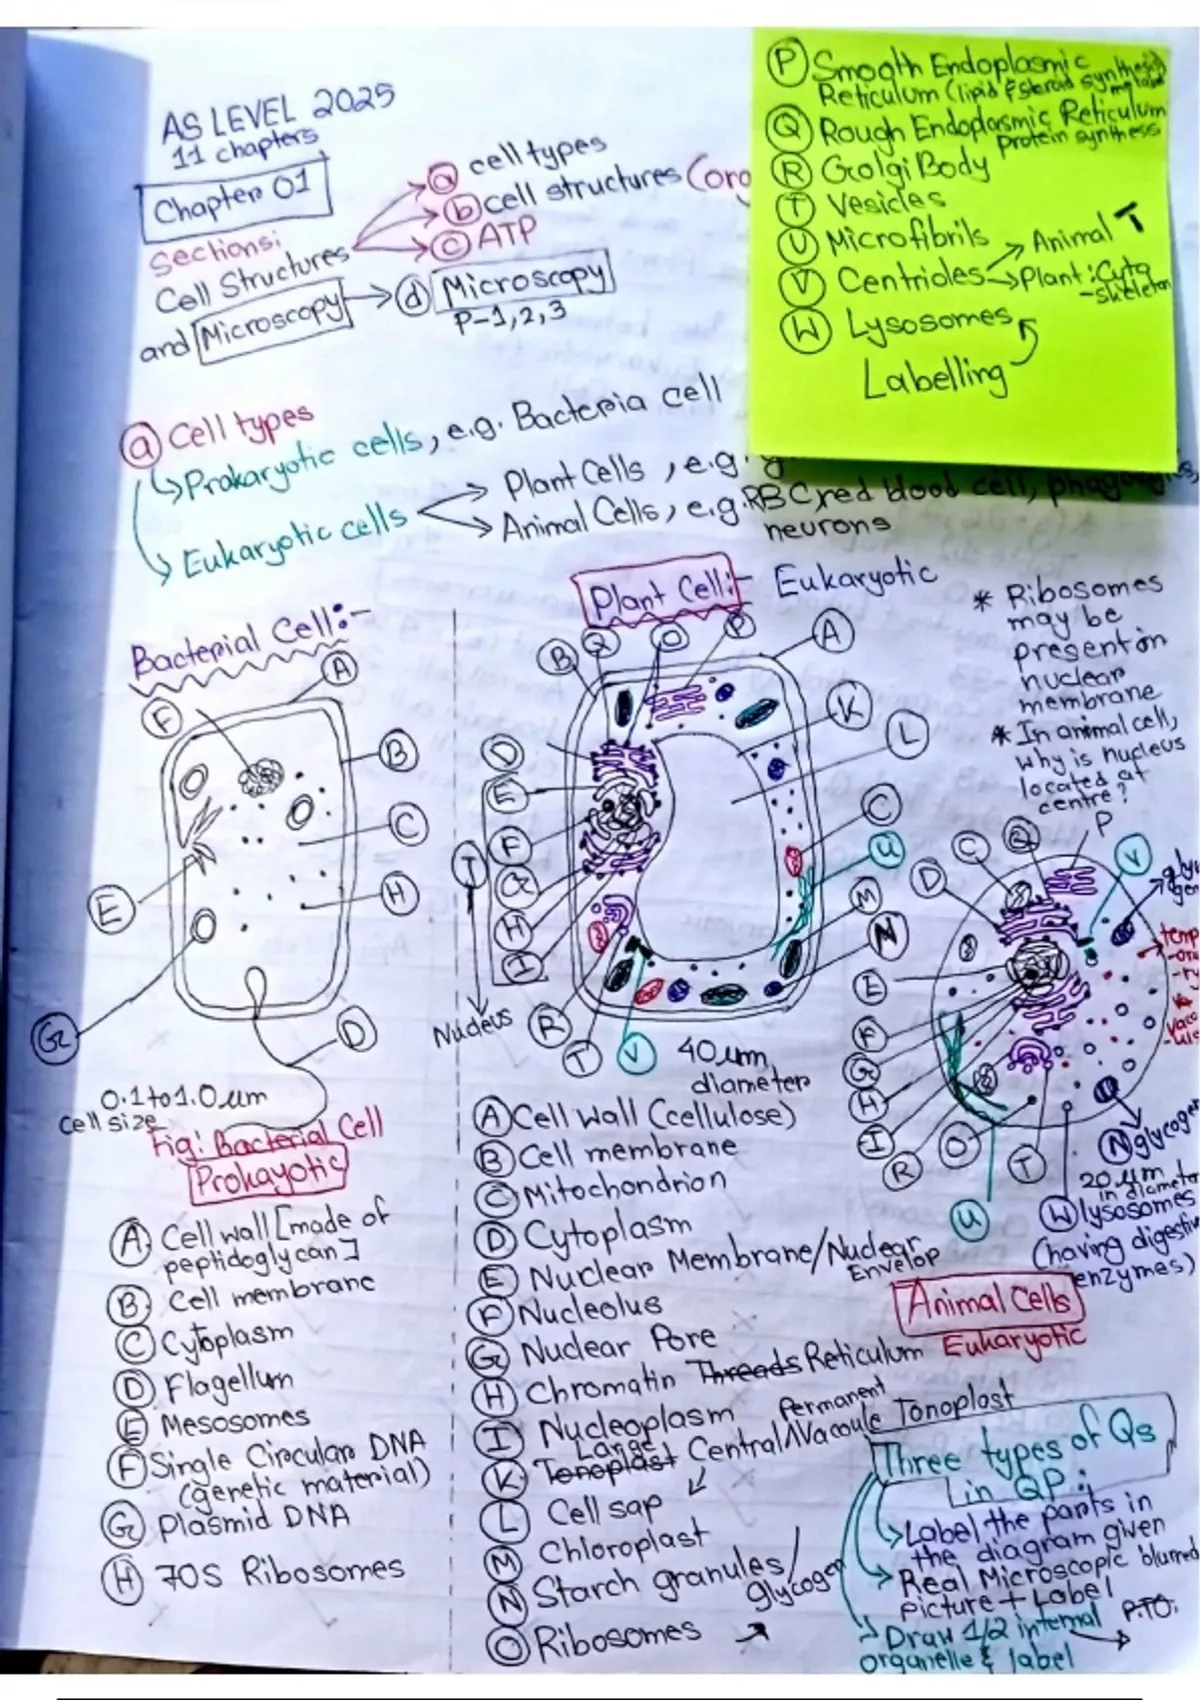 AS LEVEL 2025
11 chapters
Chapter 01
sections:
Cell Structures
and Microscopy
a cell types
b cell structures (oro
c ATP
d Microscopy
P-1,2,3
P Smooth Endoplasmic
Reticulum (lipid & steroid synthesis)
Q Rough Endoplasmic Reticulum
protein synthesis
R Golgi Body
T Vesicles
U Microfibrils
V Centrioles → Animal T
→ Plant: Cyto
-skeleton
W Lysosomes
Labelling
a Cell types
Prokaryotic cells, e.g. Bacteria cell
Eukaryotic cells
Plant Cells, e.g.
Animal Cells, e.g. RBC, red blood cell, phagocytes,
neurons
Bacterial Cell:-
A
F
B
C
E
H
G
D
0.1 to 1.0 µm
cell size
Fig: Bacterial Cell
Prokayotic
A Cell wall [made of
peptidoglycan]
B Cell membrane
C Cytoplasm
D Flagellum
E Mesosomes
F Single Circular DNA
(genetic material)
G Plasmid DNA
H 70S Ribosomes
Plant Cell:- Eukaryotic
B Q O P A
K
L
D
E
F
G
H
I
J
Nucleus
C
U
M
N
R
T
V
40 µm
diameter
A Cell wall (cellulose)
B Cell membrane
C Mitochondrion
D Cytoplasm
E Nuclear Membrane/Nuclear
Envelop
F Nucleolus
G Nuclear Pore
H Chromatin Threads Reticulum
I Nucleoplasm
K Tonoplast Large Central/Vacoule Permanent Tonoplast
L Cell sap
M Chloroplast
N Starch granules/
glycogen
O Ribosomes
* Ribosomes
may be
present on
nuclear
membrane
* In animal cell,
why is nucleus
located at
centre?
P
Q
C
D
V
E
F
G
H
I
R
O
T
U
N glycogen
20 µm
in diameter
W lysosomes
(having digestive
enzymes)
Animal Cells
Eukaryotic
Three types of Qs
in QP:
Label the parts in
the diagram given
Real Microscopic blurred
picture + Label
Draw 1/2 internal
organelle & label
P.T.O.